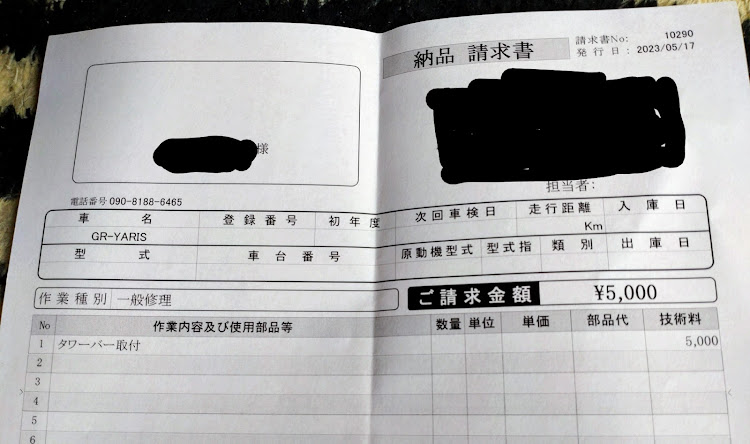 納品 請求書
請求書No: 10290
発行日: 2023/05/17
様
担当者:
電話番号 090-8188-6465
車名 登録番号 初年度 次回車検日 走行距離 入庫日
GR-YARIS Km
型式 車台番号 原動機型式 型式指 類別 出庫日
作業種別 一般修理 ご請求金額 ¥5,000
No 作業内容及び使用部品等 数量 単位 単価 部品代 技術料
1 タワーバー取付 5,000
2
3
4
5
6